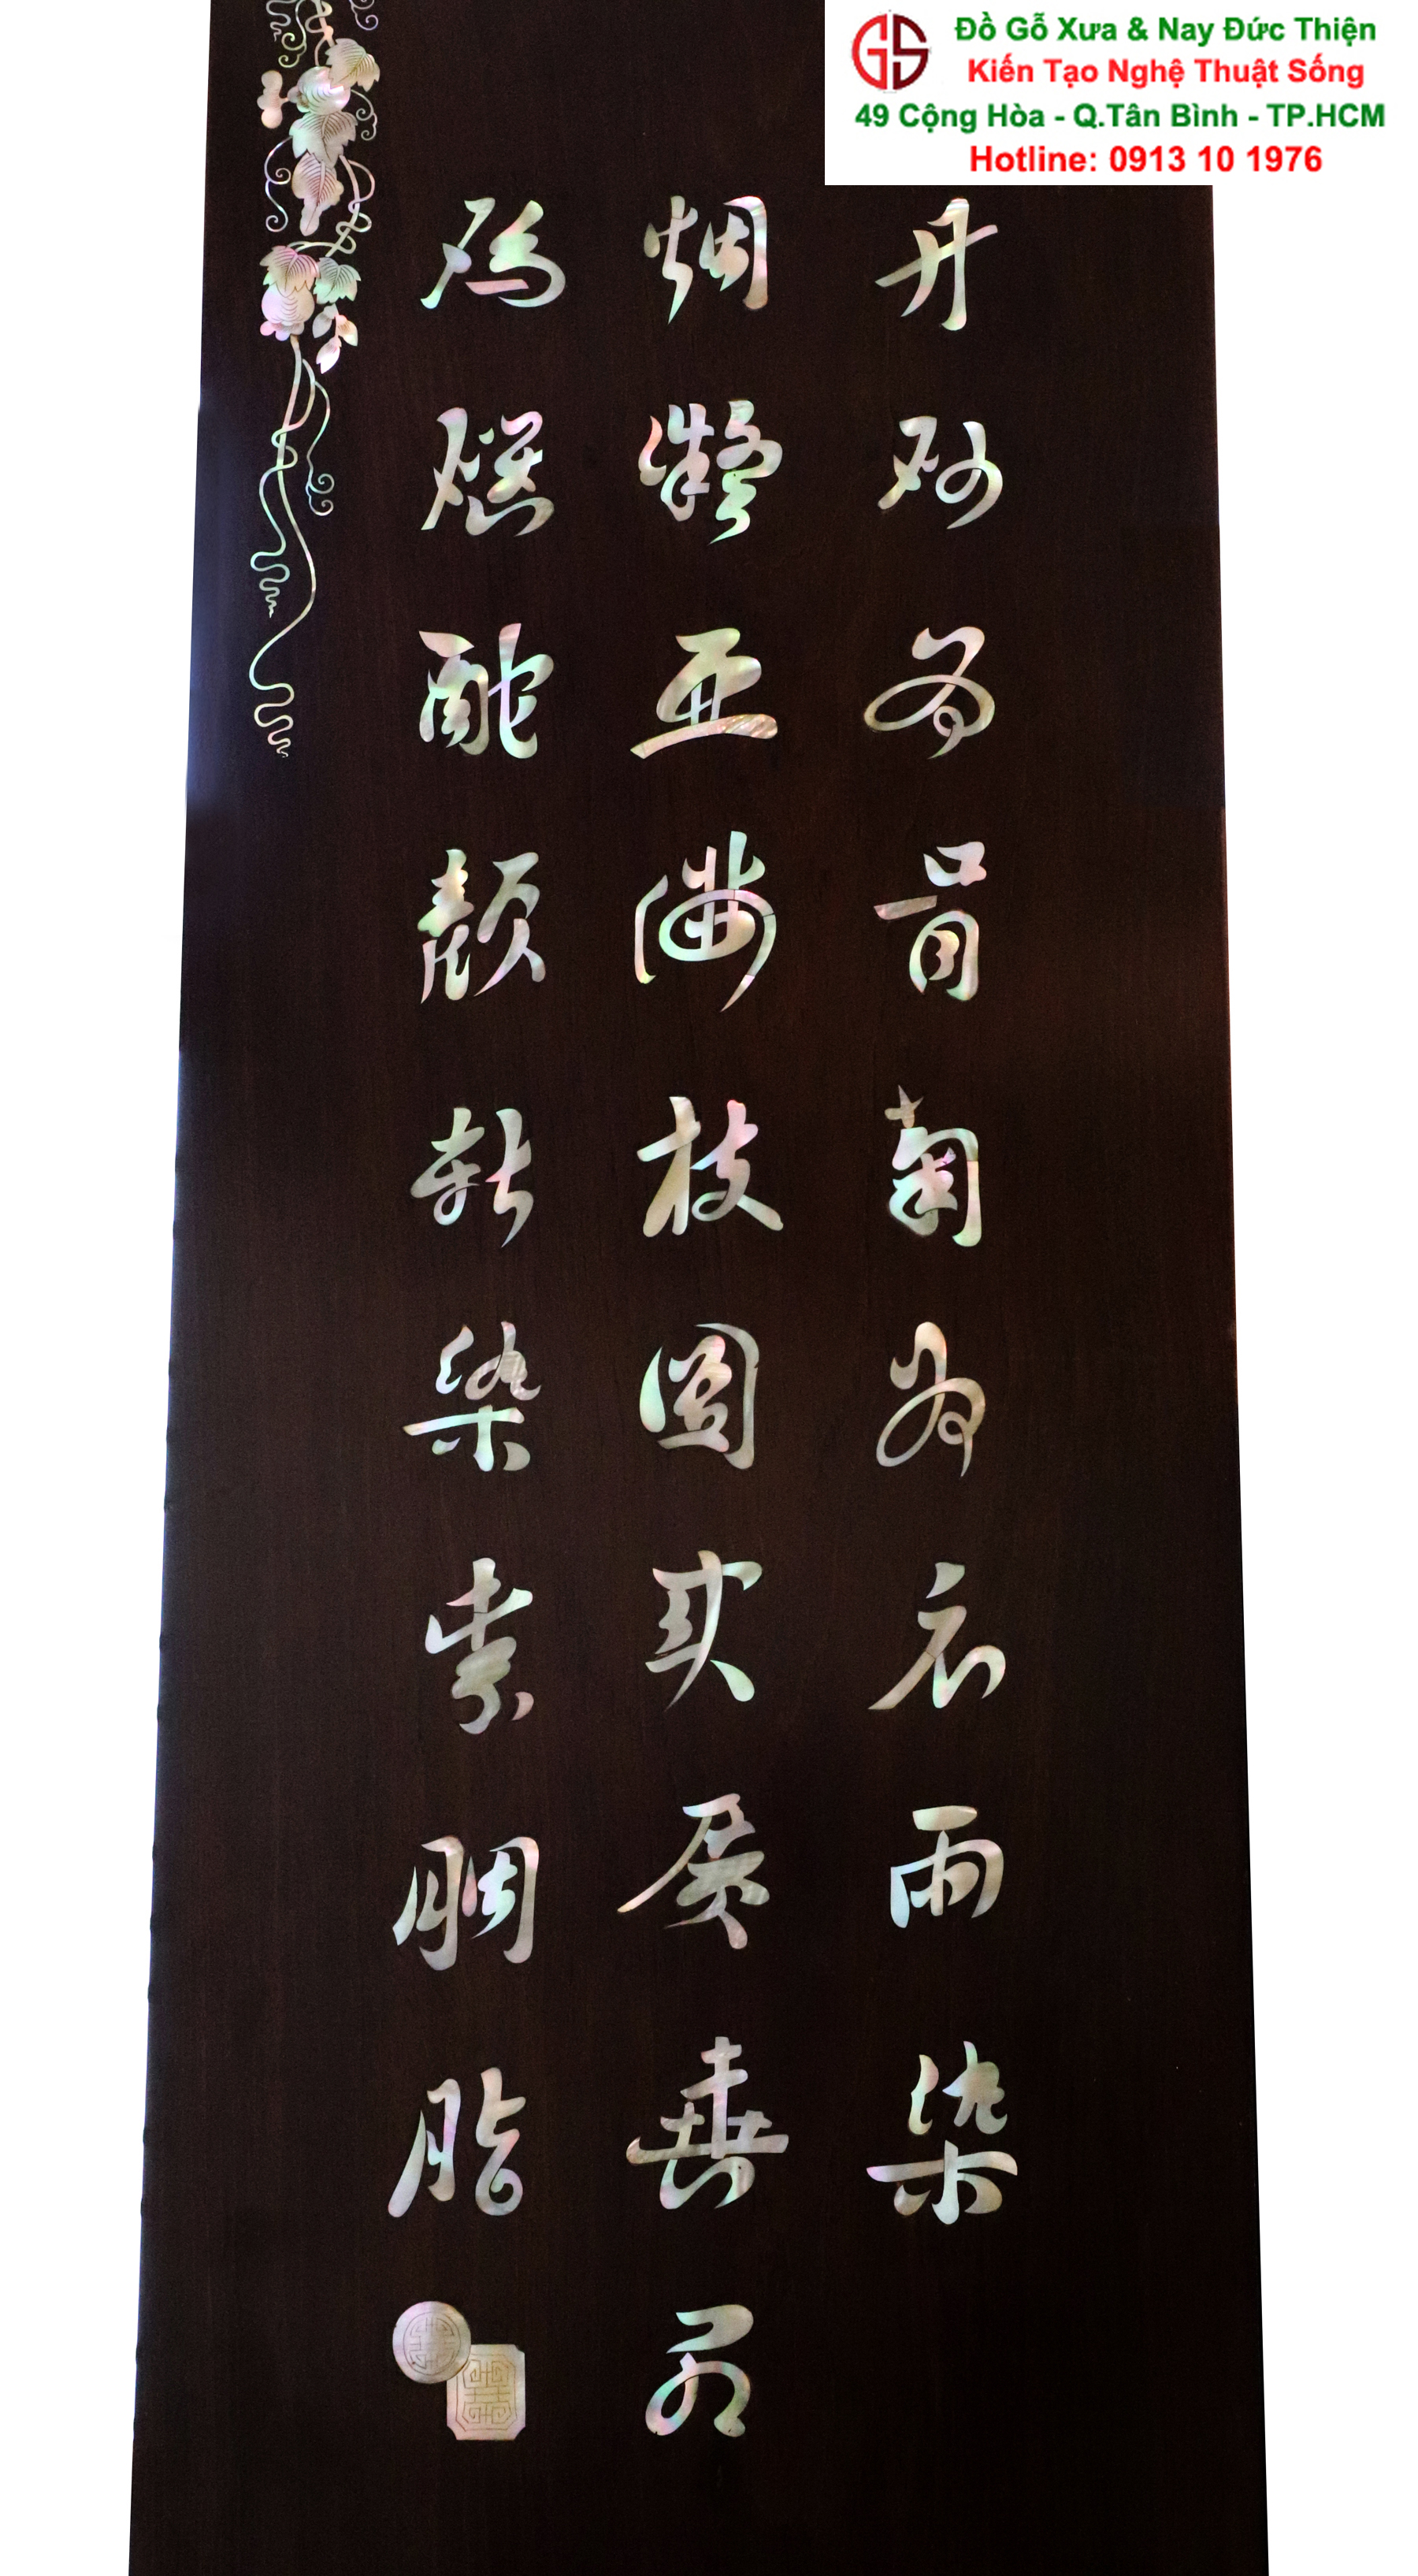 Đồ Gỗ Xưa & Nay Đức Thiện
Kiến Tạo Nghệ Thuật Sống
49 Cộng Hòa - Q.Tân Bình - TP.HCM
Hotline: 0913 10 1976
丹砂為骨菊為衣雨染
烟凝亞枝圓实垂
酡顏新染紫胭脂